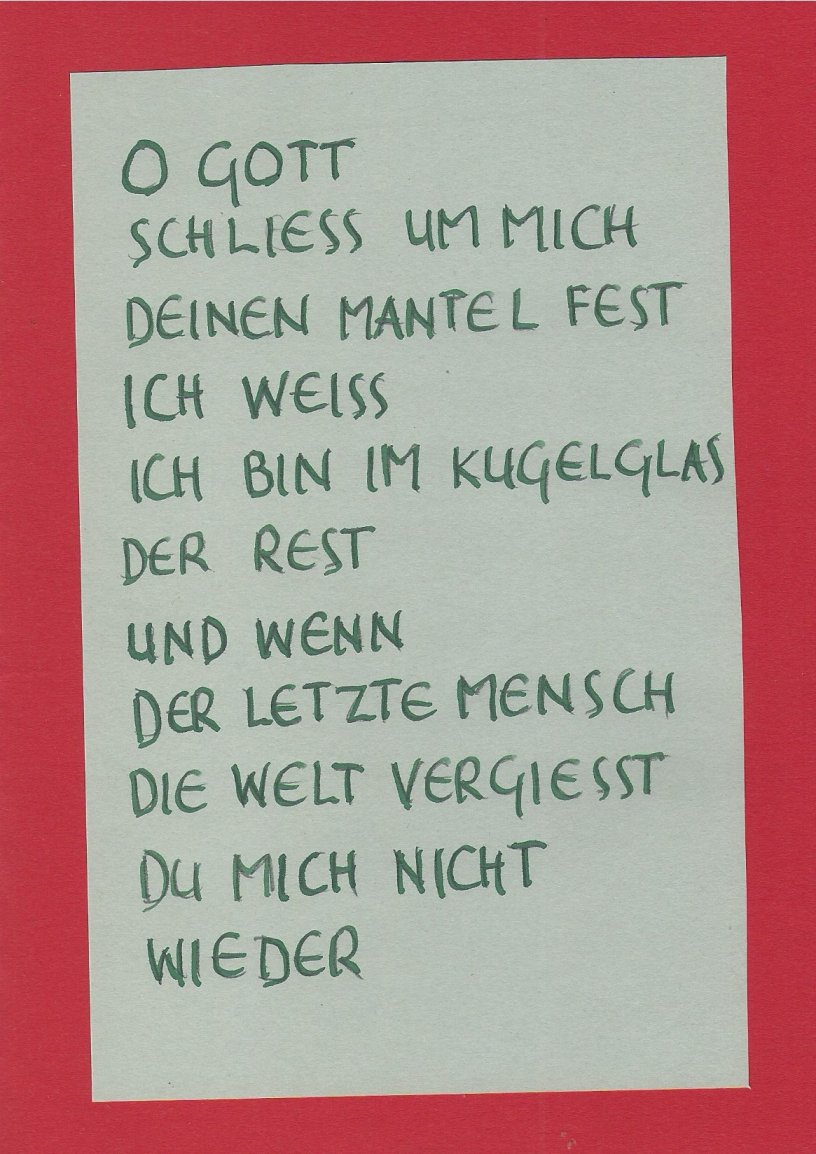 O GOTT
SCHLIESS UM MICH
DEINEN MANTEL FEST
ICH WEISS
ICH BIN IM KUGELGLAS
DER REST
UND WENN
DER LETZTE MENSCH
DIE WELT VERGIESST
DU MICH NICHT
WIEDER